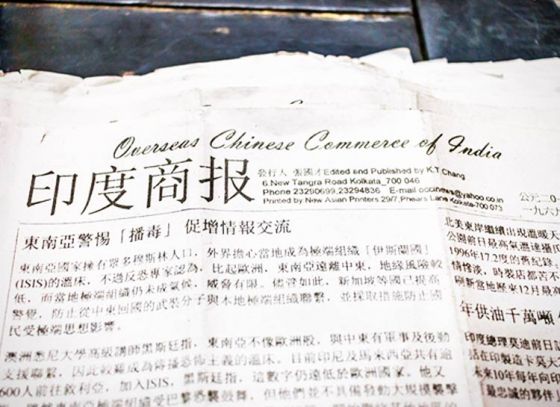 Overseas Chinese Commerce of India
印度商报
發行人 張國才 Edited and Published by K.T Chang
6,New Tangra Road Kolkata_700 046
Phone 23290699,23294836 E-mail
@yahoo.co.in
Printed by New Asian Printers 29/7,Phears Lane Kolkata-700 073
公元二0一
一九六
東南亞警惕「播毒」促增情報交流
東南亞國家擁有眾多穆斯林人口,
(ISIS)的溫床,不過反恐專家認為,
低,而當地極端組織仍未成氣候,
警覺,防止從中東回國的武裝分子與本地極端組織聯繫,並採取措施防止國
民受極端思想影響。
外界擔心當地成為極端組織「伊斯蘭國」
比起歐洲,東南亞遠離中東,地緣風險較
威脅有限。儘管如此,新加坡等國已提高
澳洲悉尼大學高級講師黑斯廷指,東南亞不像歐洲般,與中東有軍事及後勤
支援聯繫,因此較難成為傳播恐怖主義的溫床。目前印尼及馬來西亞共有逾
600人前往敘利亞,加入ISIS,黑斯廷指,這數字仍遠低於歐洲國家。他又
北美東岸繼續出現溫暖天
公園前日最高氣溫達攝
1996年17.2度的舊紀錄
情慘淡,時裝店都苦不
刷新當地歷來12月最高
年供油千萬噸
印度總理莫迪前日訪
未來10年每年向
最忠誠的夥伴